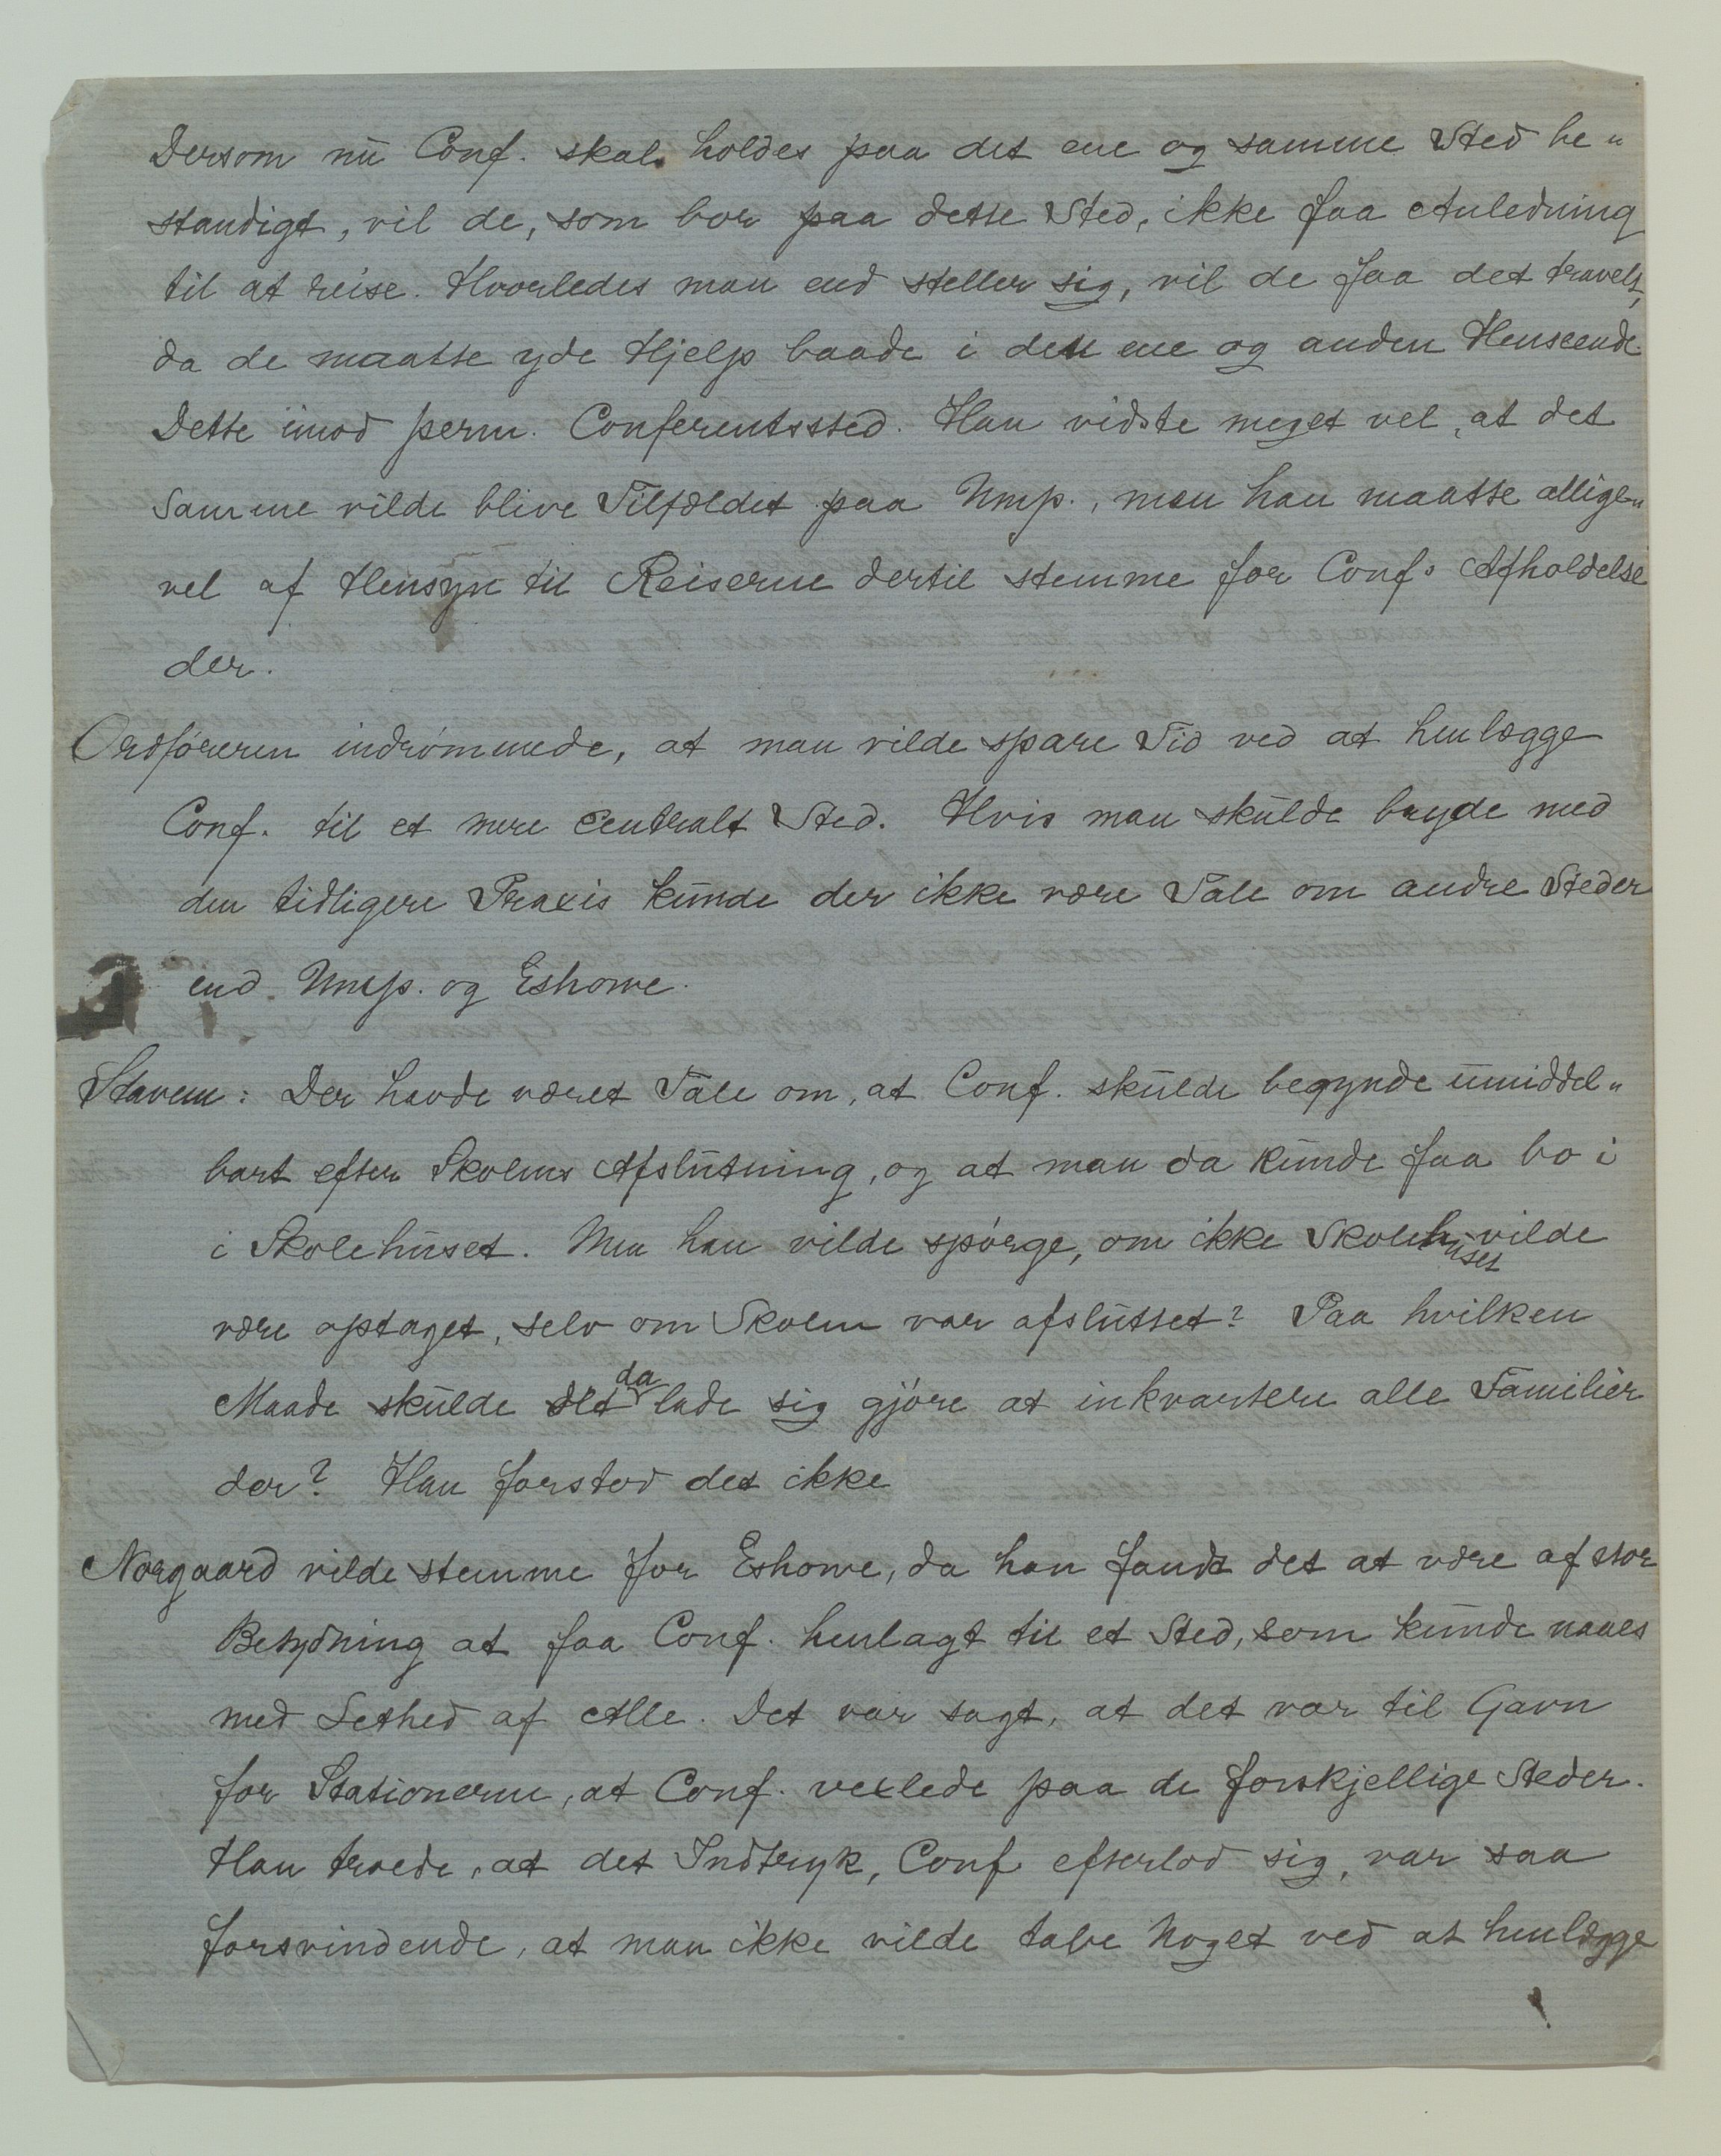 Dersom nu Conf. skal holdes paa det ene og samme Sted be-
standigt, vil de, som bor paa dette Sted, ikke faa Anledning
til at reise. Hvorledes man end steller sig, vil de faa det travelt,
da de maatte yde Hjelp baade i den ene og anden Henseende.
Dette imod perm. Conferentssted. Han vidste meget vel, at det
samme vilde blive Tilfældet paa Ump., men han maatte allige-
vel af Hensyn til Reiserne dertil stemme for Conf. Afholdelse
der.
Ordføreren indrømmede, at man vilde spare Tid ved at henlægge
Conf. til et mere centralt Sted. Hvis man skulde bryde med
den tidligere Praxis kunde der ikke være Tale om andre Steder
end Ump. og Eshowe.
Stavem: Der havde været Tale om, at Conf. skulde begynde umiddel-
bart efter Skolens Afslutning, og at man da kunde faa bo i
i Skolehuset. Men han vilde spørge, om ikke Skolehuset vilde
være optaget, selv om Skolen var afsluttet? Paa hvilken
Maade skulde det da lade sig gjøre at inkvartere alle Familier
der? Han forstod det ikke
Norgaard vilde stemme for Eshowe, da han fandt det at være af stor
Betydning at faa Conf. henlagt til et Sted, som kunde naaes
med Lethed af Alle. Det var sagt, at det var til Gavn
for Stationerne, at Conf. vexlede paa de forskjellige Steder.
Han troede, at det Indtryk, Conf. efterlod sig, var saa
forsvindende, at man ikke vilde tabe noget ved at henlægge